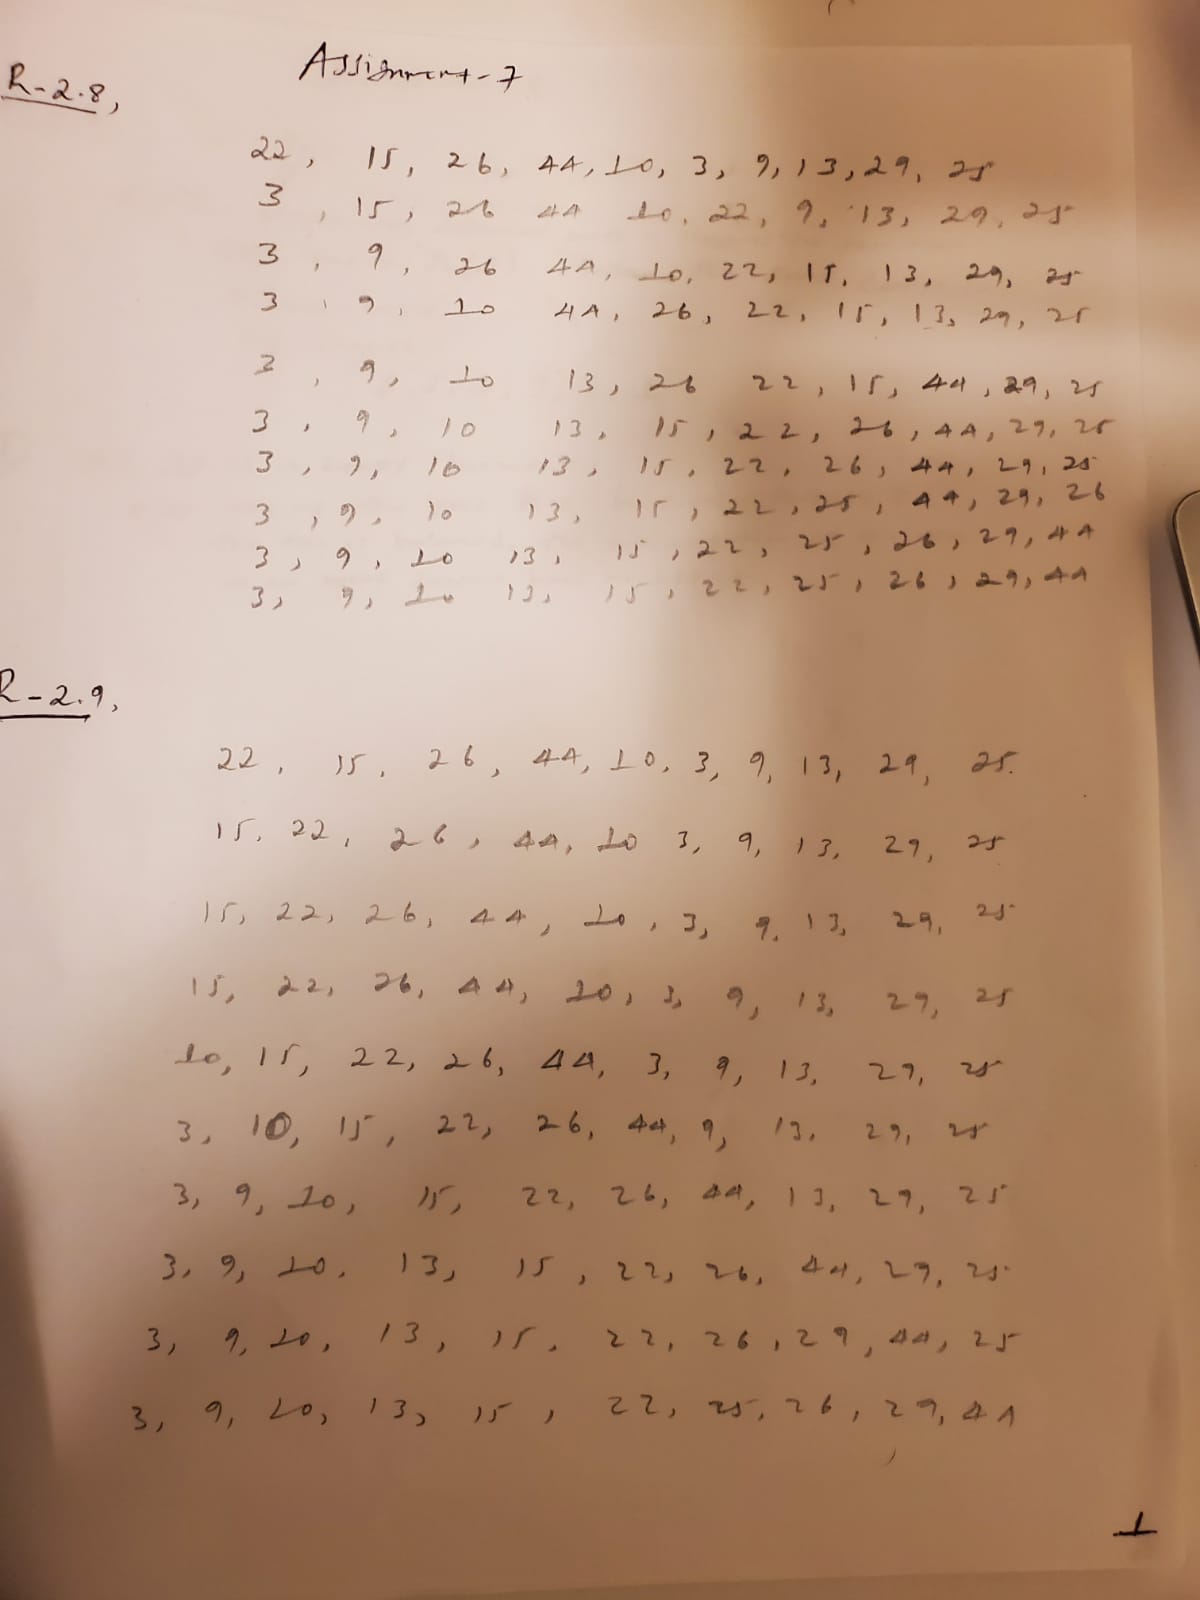 Assignment-7
R-2.8,
22, 15, 26, 44, 10, 3, 9, 13, 29, 25
3, 15, 26 44 10, 22, 9, 13, 29, 25
3, 9, 26 44, 10, 22, 15, 13, 29, 25
3, 9, 10 44, 26, 22, 15, 13, 29, 25
3, 9, 10 13, 26 22, 15, 44, 29, 25
3, 9, 10 13, 15, 22, 26, 44, 29, 25
3, 9, 10 13, 15, 22, 26, 44, 29, 25
3, 9, 10 13, 15, 22, 25, 44, 29, 26
3, 9, 10 13, 15, 22, 25, 26, 29, 44
3, 9, 10 13, 15, 22, 25, 26, 29, 44
R-2.9,
22, 15, 26, 44, 10, 3, 9, 13, 29, 25.
15, 22, 26, 44, 10 3, 9, 13, 29, 25
15, 22, 26, 44, 10, 3, 9, 13, 29, 25
15, 22, 26, 44, 10, 3, 9, 13, 29, 25
10, 15, 22, 26, 44, 3, 9, 13, 29, 25
3, 10, 15, 22, 26, 44, 9, 13, 29, 25
3, 9, 10, 15, 22, 26, 44, 13, 29, 25
3, 9, 10, 13, 15, 22, 26, 44, 29, 25
3, 9, 10, 13, 15, 22, 26, 29, 44, 25
3, 9, 10, 13, 15, 22, 25, 26, 29, 44
1